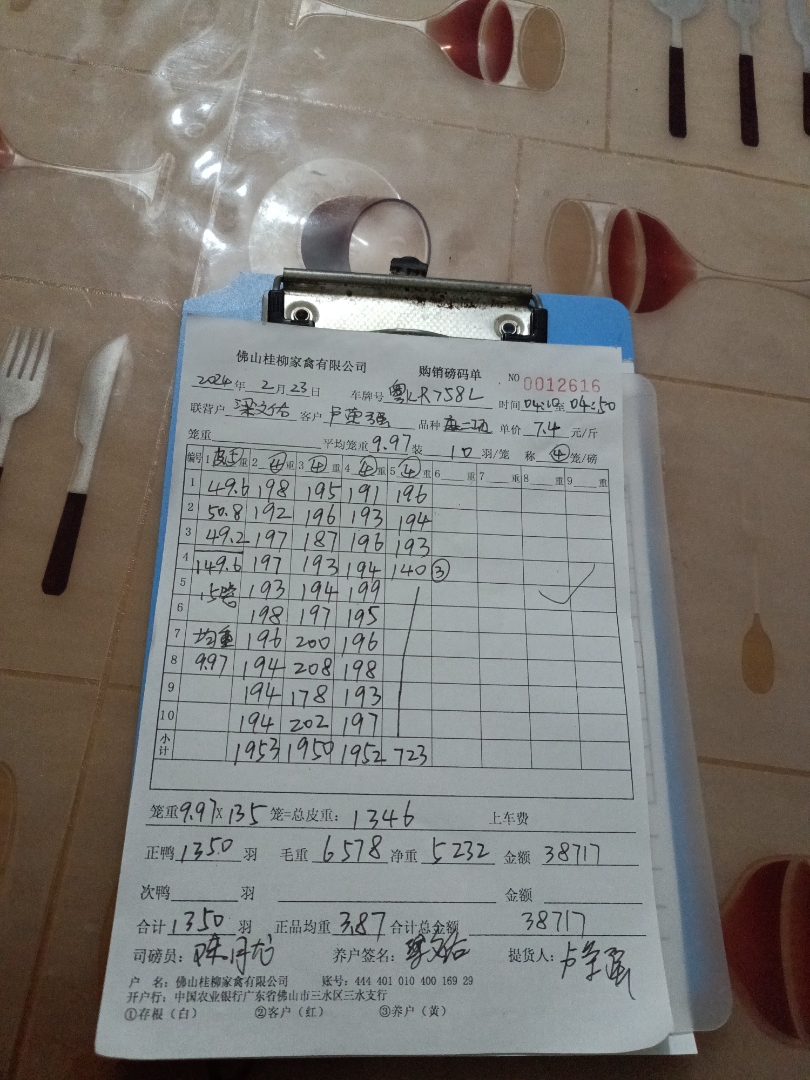 佛山桂柳家禽有限公司 购销磅码单 NO 0012616
2024年 2月23日 车牌号 粤LR758L 时间 04:10至 04:50
联营户 梁文佑 客户 品种 单价 7.4 元/斤
笼重 平均笼重 9.97 装 10 羽/笼 称 ④ 笼/磅
编号 1 皮重 重 2 ④ 重 3 ④ 重 4 ④ 重 5 ④ 重 6 重 7 重 8 重 9 重
1 49.6 198 195 191 196
2 50.8 192 196 193 194
3 49.2 197 187 196 193
4 149.6 197 193 194 140 ③
5 15笼 193 194 199
6 198 197 195
7 均重 196 200 196
8 9.97 194 208 198
9 194 178 193
10 194 202 197
小计 1953 1950 1952 723
笼重 9.97 x 135 笼=总皮重: 1346 上车费
正鸭 1350 羽 毛重 6578 净重 5232 金额 38717
次鸭 羽 金额
合计 1350 羽 正品均重 3.87 合计总金额 38717
司磅员: 养户签名: 梁文佑 提货人:
户 名: 佛山桂柳家禽有限公司 账号: 444 401 010 400 169 29
开户行: 中国农业银行广东省佛山市三水区三水支行
①存根（白） ②客户（红） ③养户（黄）